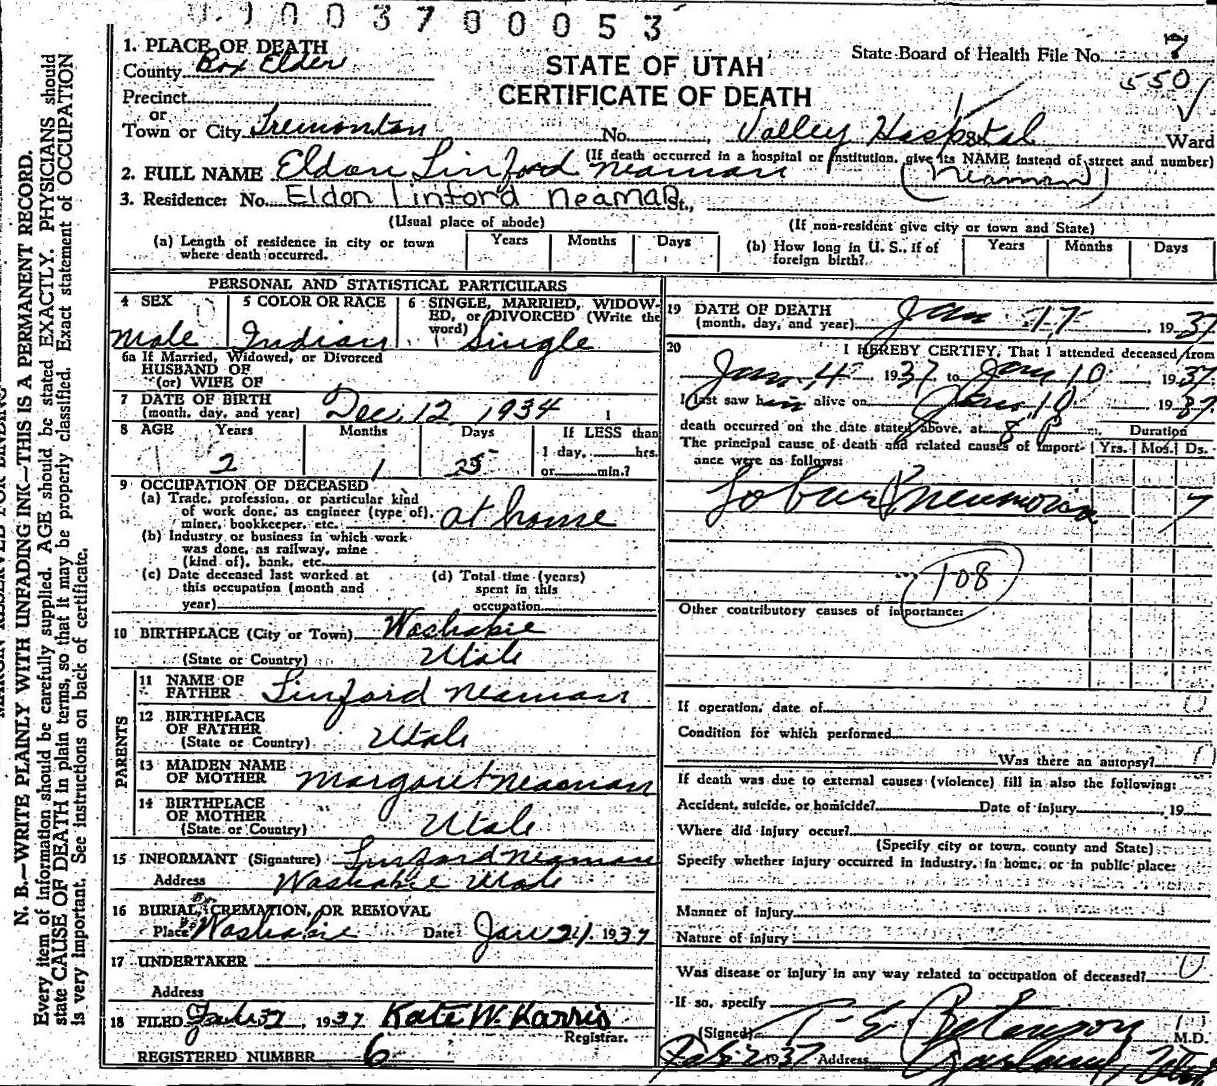 003700053
1. PLACE OF DEATH
County Box Elder
STATE OF UTAH
CERTIFICATE OF DEATH
State Board of Health File No. 7
550
Precinct
or
Town or City Tremonton No. Valley Hospital Ward
(If death occurred in a hospital or institution, give its NAME instead of street and number)
2. FULL NAME Eldon Linford Neaman (Neaman)
3. Residence: No. Eldon Linford Neaman St.,
(Usual place of abode) (If non-resident give city or town and State)
(a) Length of residence in city or town where death occurred. Years Months Days
(b) How long in U. S., if of foreign birth? Years Months Days
PERSONAL AND STATISTICAL PARTICULARS
4 SEX 5 COLOR OR RACE 6 SINGLE, MARRIED, WIDOW-
ED, or DIVORCED (Write the
word)
Male Indian Single
6a If Married, Widowed, or Divorced
HUSBAND OF
(or) WIFE OF
7 DATE OF BIRTH
(month, day, and year) Dec. 12, 1934
8 AGE Years Months Days If LESS than
1 day, hrs.
2 1 25 or min.?
9 OCCUPATION OF DECEASED
(a) Trade, profession, or particular kind
of work done, as engineer (type of),
miner, bookkeeper, etc. at home
(b) Industry or business in which work
was done, as railway, mine
(kind of), bank, etc.
(c) Date deceased last worked at
this occupation (month and
year)
(d) Total time (years)
spent in this
occupation
10 BIRTHPLACE (City or Town) Washakie
(State or Country) Utah
PARENTS
11 NAME OF
FATHER Linford Neaman
12 BIRTHPLACE
OF FATHER
(State or Country) Utah
13 MAIDEN NAME
OF MOTHER Margaret Neaman
14 BIRTHPLACE
OF MOTHER
(State or Country) Utah
15 INFORMANT (Signature) Linford Neaman
Address Washakie Utah
16 BURIAL, CREMATION, OR REMOVAL
Place Washakie Date Jan 21, 1937
17 UNDERTAKER
Address
18 FILED 1937 Kate W. Harris
Registrar.
REGISTERED NUMBER 6
19 DATE OF DEATH
(month, day, and year) Jan. 17 1937
20 I HEREBY CERTIFY, That I attended deceased from
Jan. 4 1937 to Jan 10 1937
I last saw him alive on Jan. 10 1937
death occurred on the date stated above, at 8 P m. Duration
The principal cause of death and related causes of import-
ance were as follows: Yrs. Mos. Ds.
Lobar Pneumonia 7
108
Other contributory causes of importance:
If operation, date of 0
Condition for which performed
Was there an autopsy?
If death was due to external causes (violence) fill in also the following:
Accident, suicide, or homicide? Date of injury , 19
Where did injury occur?
(Specify city or town, county and State)
Specify whether injury occurred in industry, in home, or in public place:
Manner of injury
Nature of injury
Was disease or injury in any way related to occupation of deceased? 0
If so, specify
(Signed) M.D.
Feb 2 1937 Address Garland, Utah
MARGIN RESERVED FOR BINDING
N. B.—WRITE PLAINLY WITH UNFADING INK—THIS IS A PERMANENT RECORD.
Every item of information should be carefully supplied. AGE should be stated EXACTLY. PHYSICIANS should
state CAUSE OF DEATH in plain terms, so that it may be properly classified. Exact statement of OCCUPATION
is very important. See instructions on back of certificate.